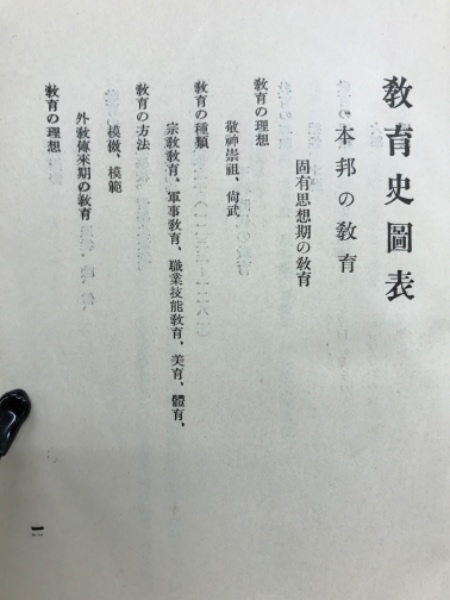 教育史圖表
本邦の教育
固有思想期の教育
教育の理想
敬神崇祖、尙武
教育の種類
宗教教育、軍事教育、職業技能教育、美育、體育、
教育の方法
模倣、模範
外教傳來期の教育
教育の理想